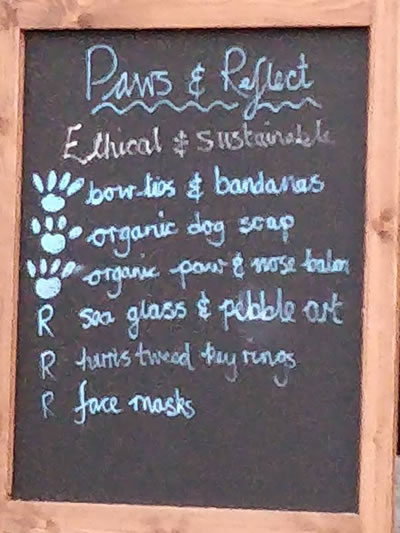 Paws & Reflect
Ethical & Sustainable
bow-ties & bandanas
organic dog soap
organic paw & nose balm
R sea glass & pebble art
R harris tweed key rings
R face masks